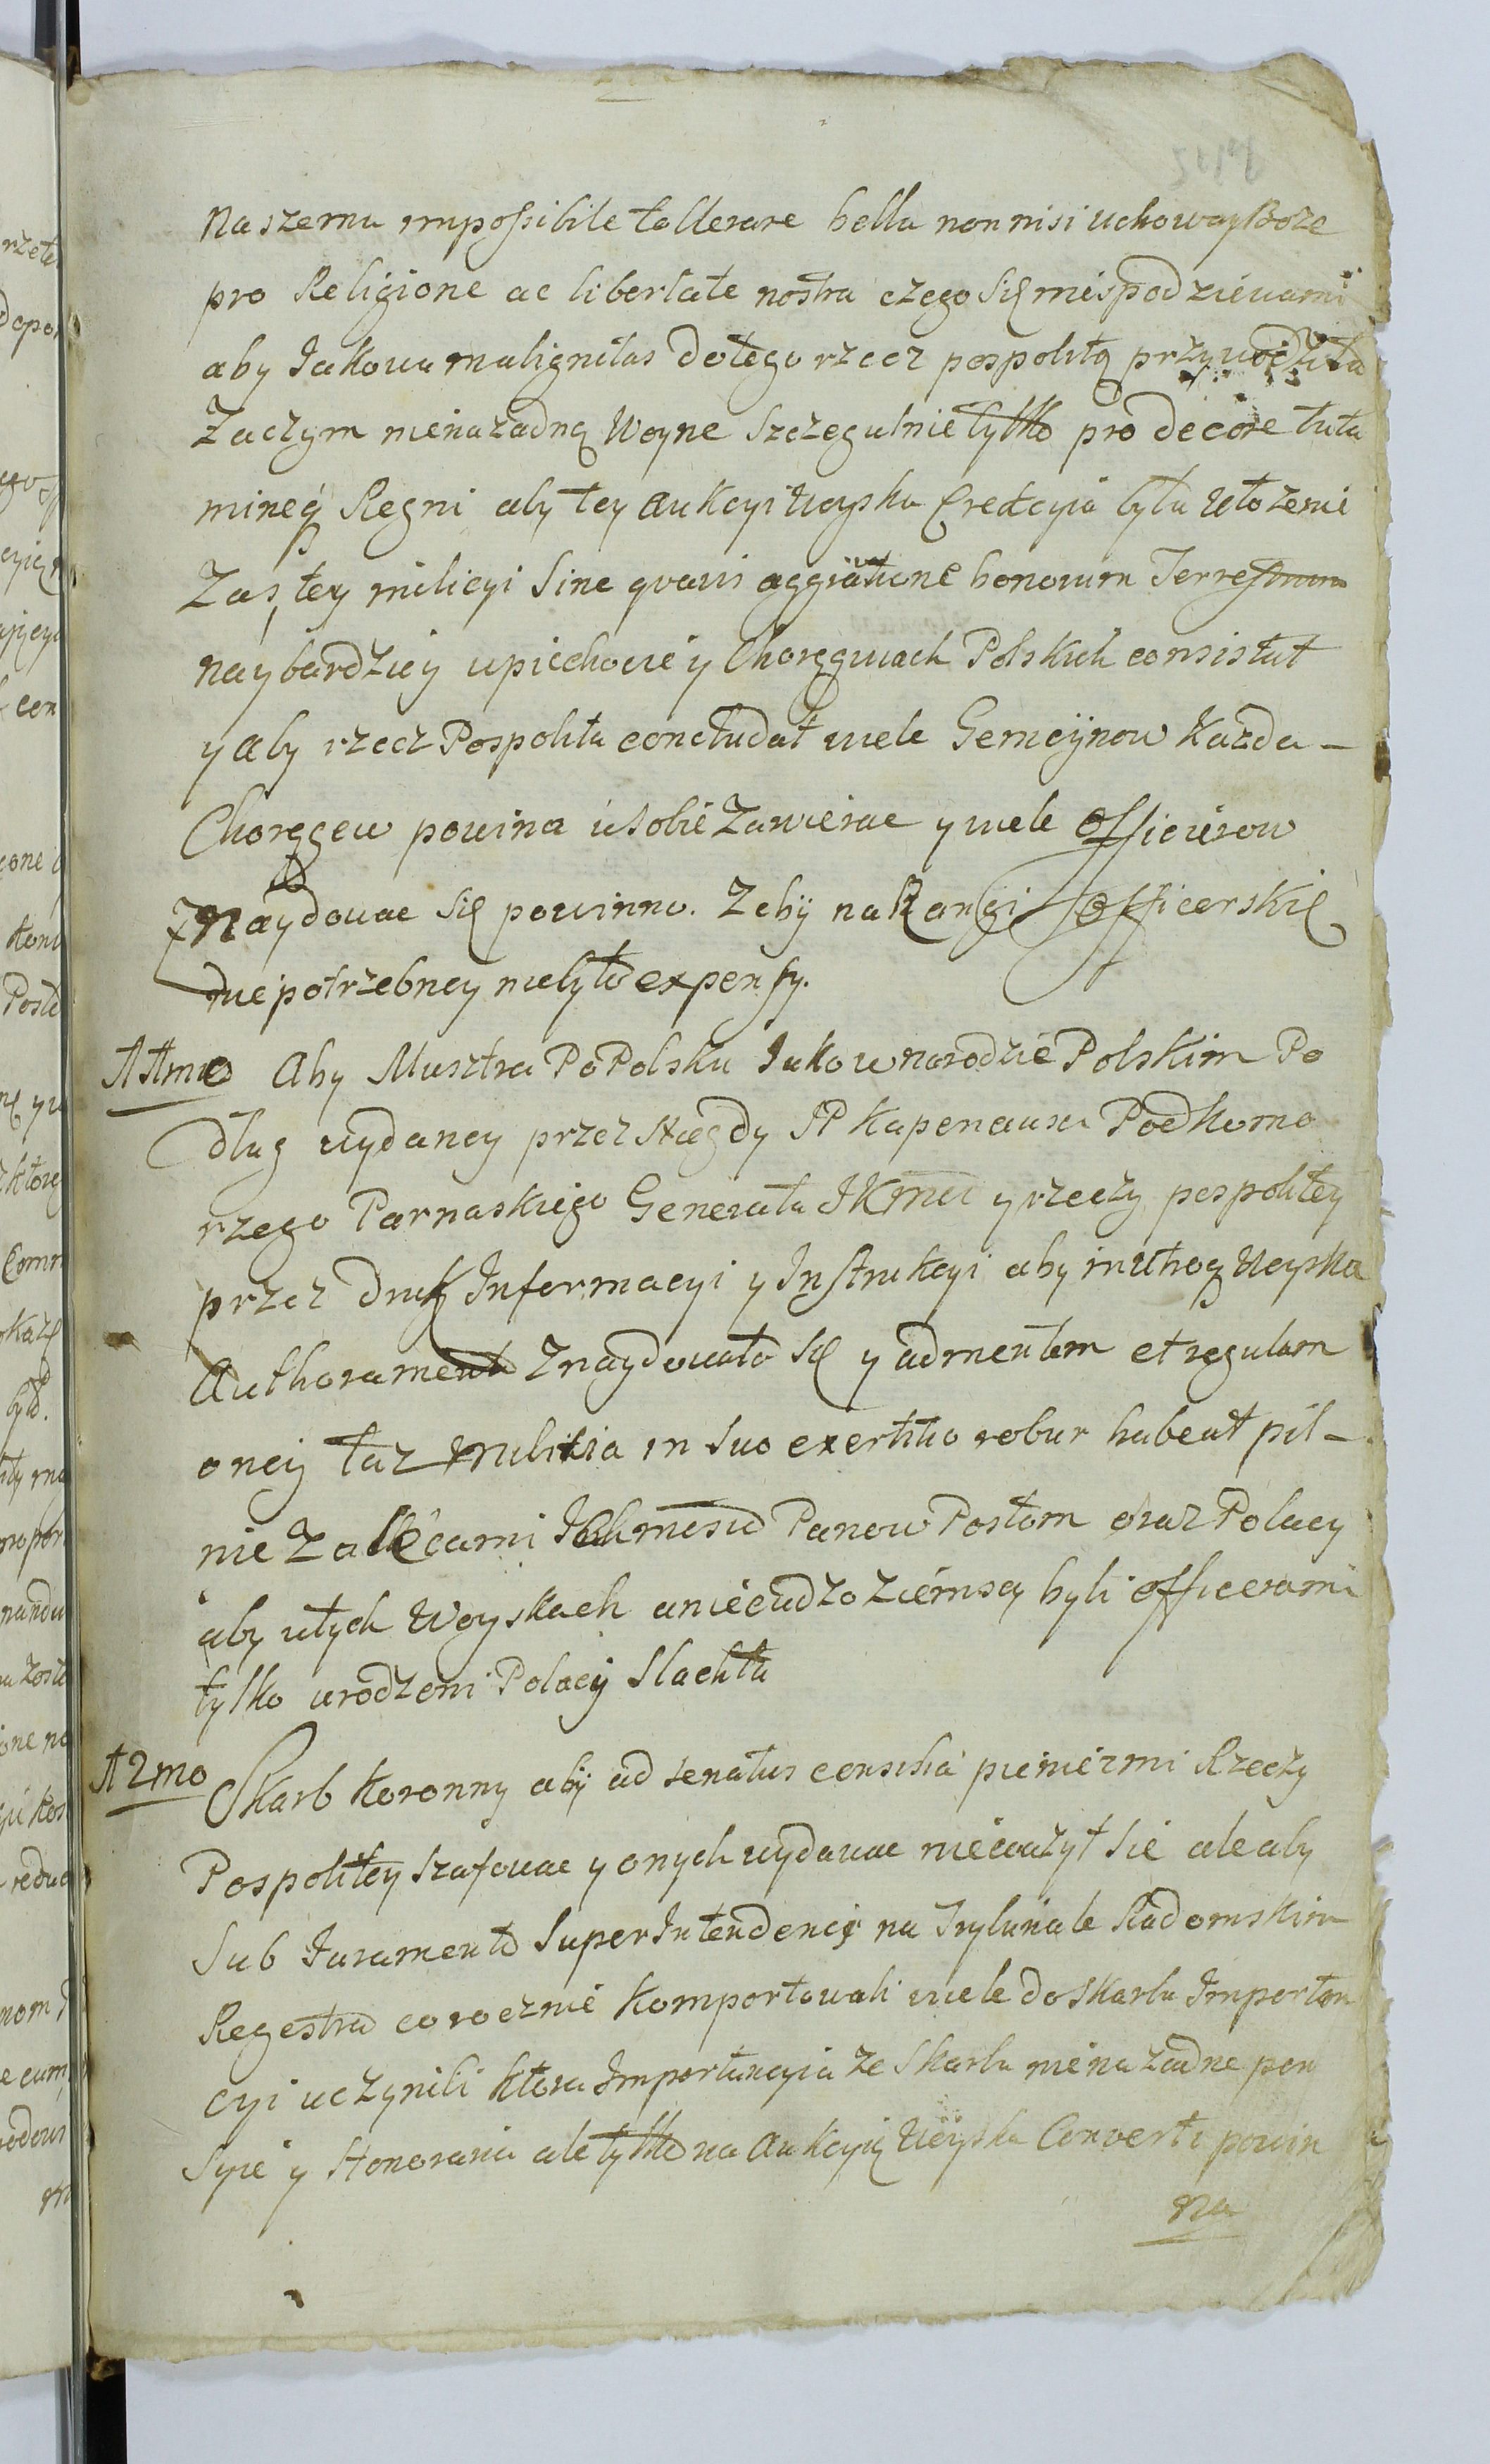 naszemu impossibile tollerare bella non nisi uchoway Boze
pro Religione ac libertate nostra czego się niespodziewami
aby Jakowa malignitas dotego rzecz pospolitą przywodziła
Zaczym nienazadną Woynę szczegulnie tylko pro decore tuta
mineq Regni aby tey aukcyi woyska Erekcyia była Ułozenie
Zas tey milicyi Sine quavis aggravatione bonorum Terrestrium
naybardziey wpiechocie y Choręgwiach Polskich consistat
y aby rzecz Pospolita concludat wiele Gemeynow Kazda –
Choręgew powina wsobie Zawierac y wiele Officierow
Znaydowac się powinno. Zeby na Rangi Officerskię
nie potrzebney niebyło expensy.
11mo Aby Musztra Po Polsku Jako w narodzie Polskim Po
dług wydaney przez JP Kapenausa Podkomo
rzego Parnaskiego Generała JKmci y rzeczy pospolitey
przez druk Informacyi y Instrukcyi aby woyska
Authoramentu Znaydowało się y ad mentem et regulam
oney taz milicia in suo exertitio robur habeat pil–
nie Zalecami Jchmciow Panow Posłom oraz Polacy
aby wtych Woyskach aniecudzoziemscy byli officerami
tylko urodzeni Polacy Slachta
12mo Skarb Koronny aby ad senatus consilia pieniezmi Rzeczy
Pospolitey szafowac y onych wydawac niewazył się ale aby
Sub Juramento SuperIntendenci na Trybunale Radomskim
Regestra corocznie Komportowali wiele do Skarbu Importan
cyi uczynili ktora Importancyia ze Skarbu niena zadne pen
syie y Honoraria ale tylko na Aukcyię Woyska Converti powin
na